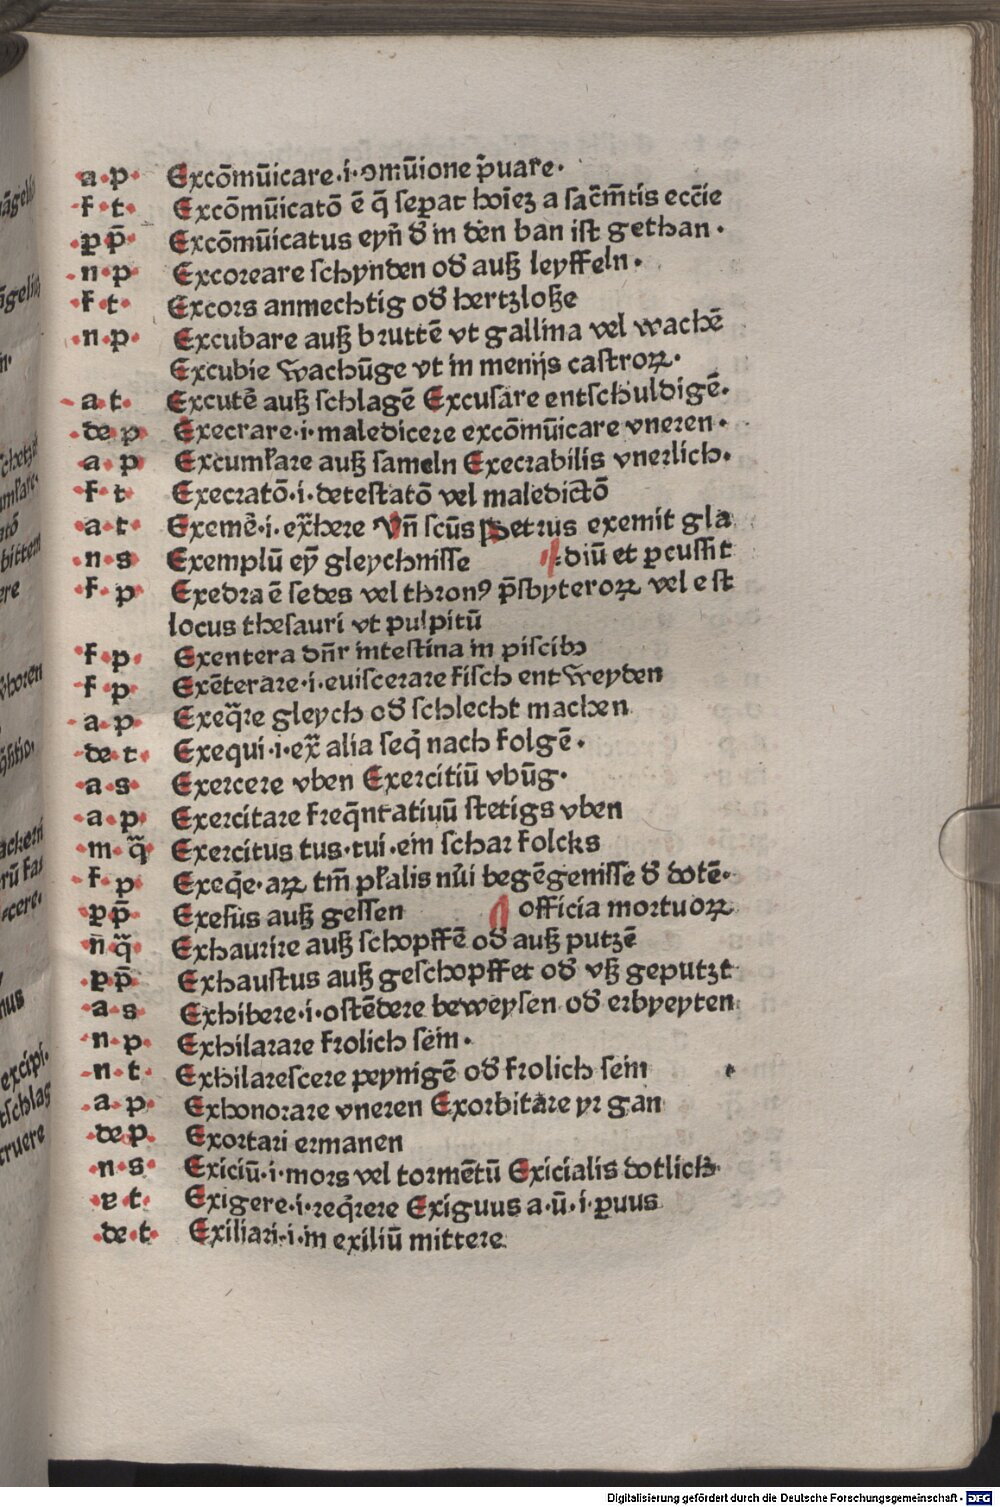 ·a·p· Excōmūicare·i·ɔmūione p̄uare·
·f·t· Excōmūicatō ē q̄ seꝑat hoīeʒ a sac̄m̄tis ecc̄ie
·ꝑp̄· Excōmūicatus eyn̄ d̓ in den ban ist gethan·
·n·p· Excoreare schynden od̓ auß leyffeln·
·f·t· Excors anmechtig od̓ hertzloße
·n·p· Excubare auß bruttē vt gallina vel wachē
Excubie wachūge vt in menijs castroꝝ·
·a·t· Excutē auß schlagē Excusare entschuldigē·
·de p· Execrare·i·maledicere excōmūicare vneren·
·a·p· Excumƚare auß sameln Execrabilis vnerlich·
·f·t· Execratō·i·detestatō vel maledictō
·a·t· Exemē·i·ex̄here Vn̄ scūs Petrus exemit gla
·n·s· Exemplū eȳ gleychnisse diū et ꝑcussit
·f·p· Exedra ē sedes vel thronꝰ p̄sbyteroꝝ vel est
locus thesauri vt pulpitū
·f·p· Exentera dn̄r intestina in piscibꝫ
·f·p· Exēterare·i·euiscerare fisch entweyden
·a·p· Exeq̄re gleych od̓ schlecht machen
·de·t· Exequi·i·ex̄ alia seq̄ nach folgē·
·a·s· Exercere vben Exercitiū vbūg·
·a·p· Exercitare freq̄ntatiuū stetigs vben
·m·q̄· Exercitus tus·tui·ein schar folcks
·f·p· Exeq̄e·aꝝ tm̄ pƚalis nūi begēgenisse d̓ dotē·
·ꝑp̄· Exesus auß gessen officia mortuoꝝ
·n̄·q̄· Exhaurire auß schopffē od̓ auß putzē
·ꝑp̄· Exhaustus auß geschopffet od̓ vß geputzt
·a·s· Exhibere·i·ostēdere beweysen od̓ erbyeyten
·n·p· Exhilarare frolich sein·
·n·t· Exhilarescere peynigē od̓ frolich sein
·a·p· Exhonorare vneren Exorbitare yr gan
·de p· Exortari ermanen
·n·s· Exiciū·i·mors vel tormētū Exicialis dotlich·
·ꝑ t· Exigere·i·req̄rere Exiguus a·ū·i·ꝑuus
·de·t· Exiliari·i·in exiliū mittere
Digitalisierung gefördert durch die Deutsche Forschungsgemeinschaft - DFG